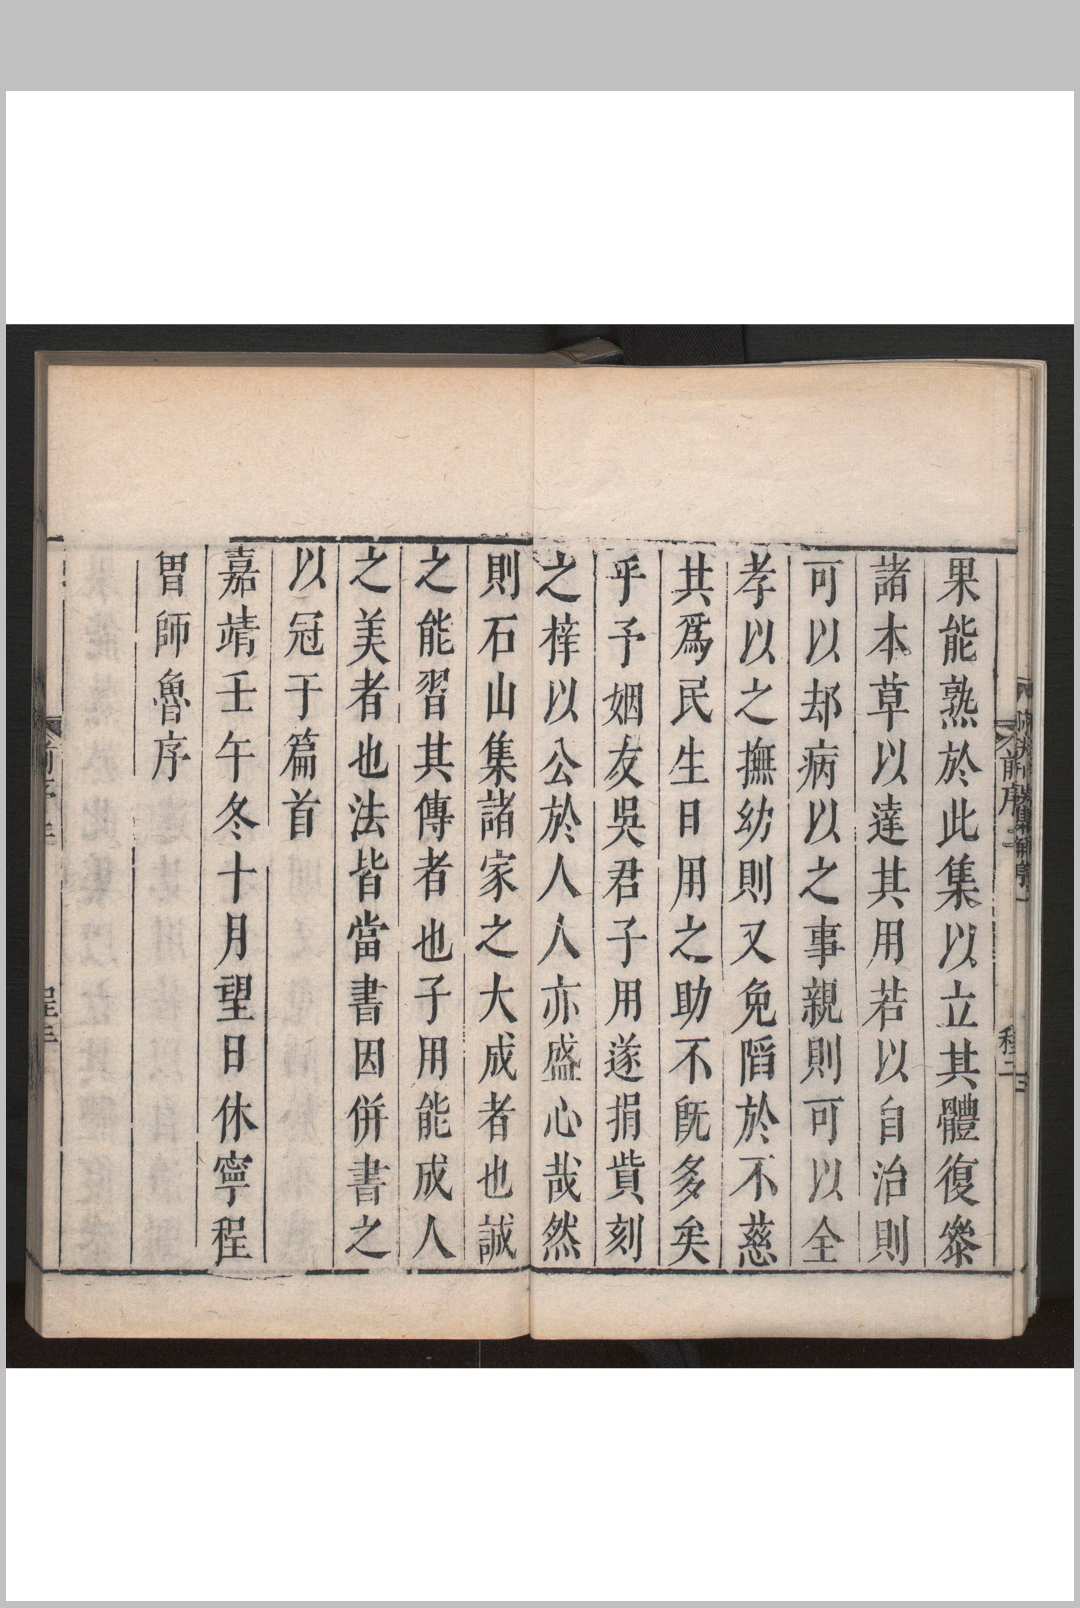 果能熟於此集以立其體復叅
諸本草以達其用若以自治則
可以却病以之事親則可以全
孝以之撫幼則又免䧟於不慈
其爲民生日用之助不旣多矣
乎予姻友吳君子用遂捐貲刻
之梓以公於人人亦盛心哉然
則石山集諸家之大成者也誠
之能習其傳者也子用能成人
之美者也法皆當書因併書之
以冠于篇首
嘉靖壬午冬十月望日休寧程
曾師魯序
前序
程二